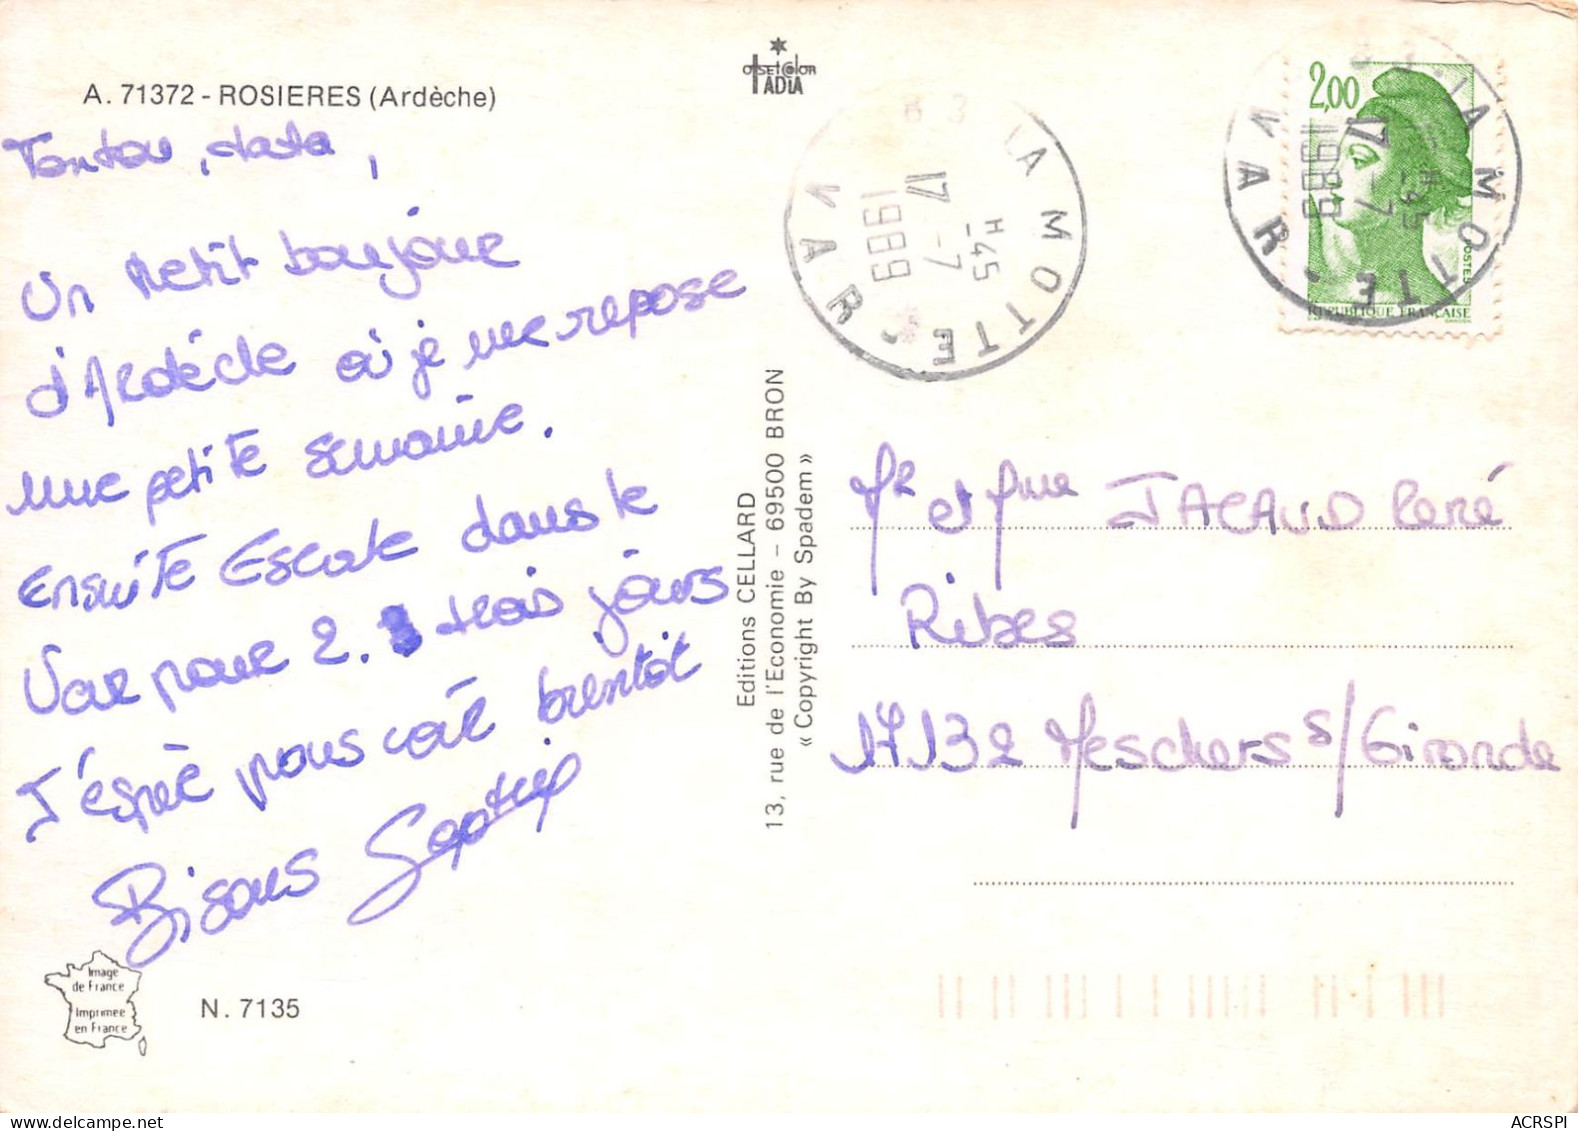 A. 71372 - ROSIERES (Ardèche)
Tonton, tata,
Un Petit bonjour
d'Ardèche où je me repose
une petite semaine.
Ensuite Escale dans le
Var pour 2. trois jours
J'espère vous voir bientôt
Bisous
Image
de France
Imprimée
en France
N. 7135
OFFSET COLOR
IADIA
Editions CELLARD
13, rue de l'Economie - 69500 BRON
« Copyright By Spadem »
83 LA MOTTE
VAR
H 45
17 - 7
1989
2,00
POSTES
REPUBLIQUE FRANÇAISE
83 LA MOTTE
VAR
H 45
17 - 7
1989
Mr et Mme JACAUD René
Ribes
17132 Meschers s/Gironde
ACRSPI